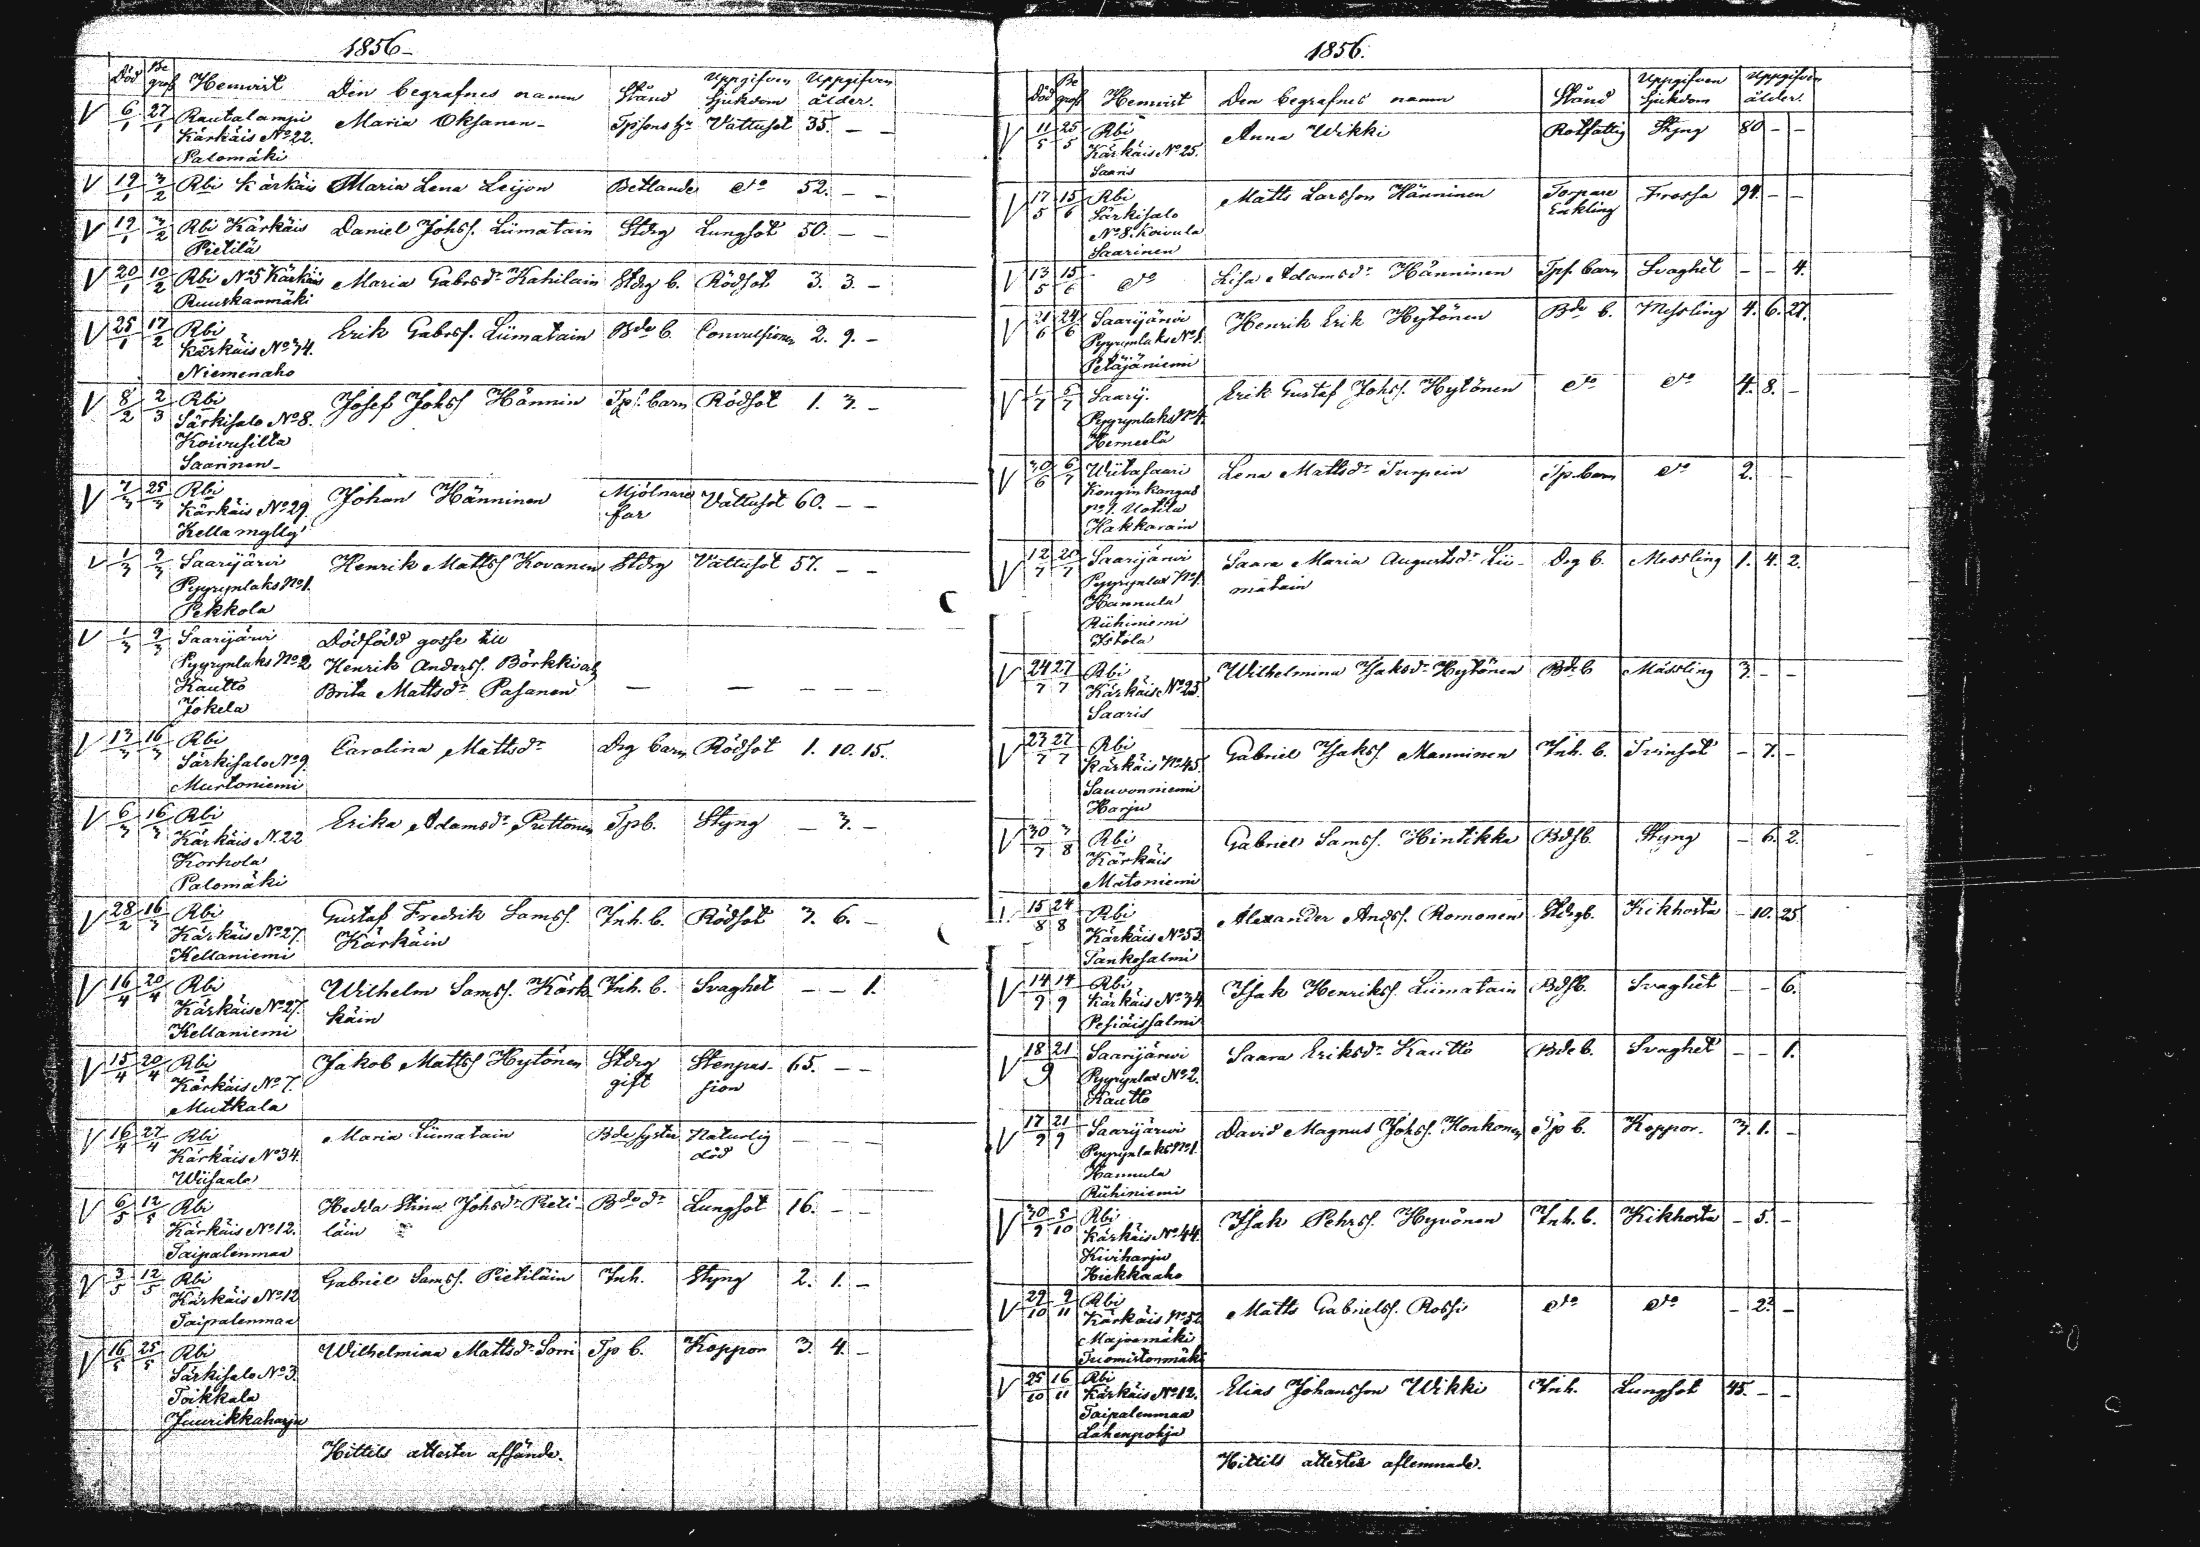 1856-
Död Be graf Hemvist Den begrafnes namn Stånd Uppgifven Sjukdom Uppgifven ålder.
V 6/1 27/1 Rautalampi Maria Oksanen- Tpsons hr Vattusot 35. - -
Kärkäis No 22.
Palomäki
V 19/1 3/2 Rbi Kärkäis Maria Lena Leijon Betlande do 52. - -
V 19/1 3/2 Rbi Kärkäis Daniel Johss. Liimatain Stdrg Lungsot 50. - -
Pietilä
V 20/1 10/2 Rbi No 5 Kärkäis Maria Gabrsdr Kahilain Stdrg b. Rödsot 3. 3. -
Ruuskanmäki
V 25/1 17/2 Rbi Erik Gabrss. Liimatain Bde b. Convulsioner 2. 9. -
Kärkäis No 34.
Niemenaho
V 8/2 2/3 Rbi Josef Johss Hännin Tps. barn Rödsot 1. 3. -
Särkisalo No 8.
Koivusilta
Saarinen-
V 7/3 25/3 Rbi Johan Hänninen Mjölnare Vattusot 60. - -
Kärkäis No 29. far
Kellamylly
V 1/3 9/3 Saarijärvi Henrik Mattss Kovanen Stdrg Vattusot 57. - -
Pyyrynlaks No 1.
Pekkola
V 1/3 9/3 Saarijärvi Dödfödd gosse till
Pyyrynlaks No 2 Henrik Anderss. Börkki och
Kautto Brita Mattsdr Pasanen - - - - -
Jokela
V 13/3 16/3 Rbi Carolina Mattsdr Drg barn Rödsot 1. 10. 15.
Särkisalo No 9
Murtoniemi
V 6/3 16/3 Rbi Erika Adamsdr Puttonen Tpb. Styng - 3. -
Kärkäis N. 22
Korhola
Palomäki
V 28/2 16/3 Rbi Gustaf Fredrik Samss. Inh. b. Rödsot 3. 6. -
Kärkäis No 27. Kärkäin
Kellaniemi
V 16/4 20/4 Rbi Wilhelm Samss. Kärk- Inh. b. Svaghet - - 1.
Kärkäis No 27. käin
Kellaniemi
V 15/4 20/4 Rbi Jakob Mattss Hytönen Stdrg Stenpas- 65. - -
Kärkäis No 7. gift sion
Mutkala
V 16/4 27/4 Rbi Maria Liimatain Bde syster Naturlig - - -
Kärkäis No 34. död
Wiisaala
V 6/5 12/5 Rbi Hedda Stina Johsdr Pieti- Bde dr Lungsot 16. - -
Kärkäis No 12. läin
Taipalenmaa
V 3/5 12/5 Rbi Gabriel Samss. Pietiläin Inh. Styng 2. 1. -
Kärkäis No 12
Taipalenmaa
V 16/5 25/5 Rbi Wilhelmina Mattsdr Sorri Tp b. Koppor 3. 4. -
Särkisalo No 3.
Toikkala
Juurikkaharju
Hittils attester afsände.
1856.
Död Be graf Hemvist Den begrafnes namn Stånd Uppgifven Sjukdom Uppgifven ålder.
V 11/5 25/5 Rbi Anna Wikki Rotfattig Styng 80 - -
Kärkäis No 25.
Saaris
V 17/5 15/6 Rbi Matts Larsson Hänninen Torpare Frossa 91. - -
Särkisalo Enkling
No 8. Koivula
Saarinen
V 13/5 15/6 do Lisa Adamsdr Hänninen Tps. barn Svaghet - - 4.
V 21/6 24/6 Saarijärvi Henrik Erik Hytönen Bde b. Messling 4. 6. 27.
Pyyrynlaks No 8.
Petäjäniemi
V 1/7 6/7 Saarij. Erik Gustaf Johss. Hytönen do do 4. 8. -
Pyyrynlaks No 4.
Herneelä
V 30/6 6/7 Wiitasaari Lena Mattsdr Turpein Tp. barn do 2. - -
Konginkangas
No 1. Uotila
Hakkarain
V 12/7 20/7 Saarijärvi Saara Maria Augustsdr Lii- Drg b. Messling 1. 4. 2.
Pyyrynlax No 1. matain
Hannula
Riihiniemi
Istola
V 24/7 27/7 Rbi Wilhelmina Isaksdr Hytönen Bde b Mässling 3. - -
Kärkäis No 25.
Saaris
V 23/7 27/7 Rbi Gabriel Isakss. Manninen Inh. b. Tvinsot - 7. -
Kärkäis No 45.
Sauvonniemi
Harju
V 30/7 3/8 Rbi Gabriel Samss. Hintikka Bdsb. Styng - 6. 2.
Kärkäis
Matoniemi
15/8 24/8 Rbi Alexander Andss. Romonen Stdrgb. Kikhosta - 10. 25.
Kärkäis No 53.
Tankosalmi
V 14/9 14/9 Rbi Isak Henrikss. Liimatain Bdsb. Svaghet - - 6.
Kärkäis No 34.
Pesiäissalmi
V 18 21/9 Saarijärvi Saara Eriksdr Kautto Bde b. Svaghet - - 1.
Pyyrynlax No 2.
Kautto
V 17/9 21/9 Saarijärvi David Magnus Johss. Honkonen Tp b. Koppor. 3. 1. -
Pyyrynlaks No 1.
Hannula
Riihiniemi
V 30/9 5/10 Rbi Isak Pehrss. Hyvönen Inh. b. Kikhosta - 5. -
Kärkäis No 44.
Kiviharju
Hiekkaaho
V 29/10 9/11 Rbi Matts Gabrielss. Rossi do do - 2. -
Kärkäis No 52.
Majvamäki
Tuomistonmäki
V 25/10 16/11 Rbi Elias Johansson Wikki Inh. Lungsot 45. - -
Kärkäis No 12.
Taipalenmaa
Lahenpohja
Hittils attester aflemnade.